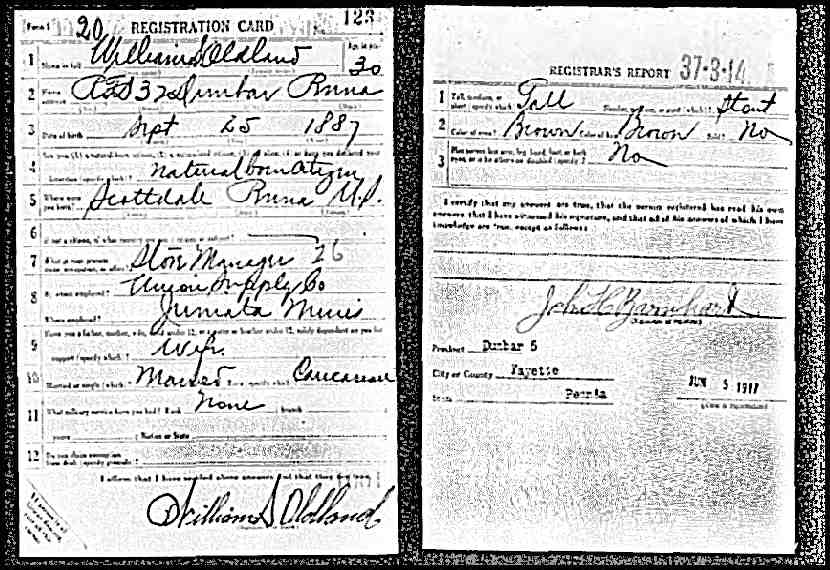 Form 1 20 REGISTRATION CARD No. 123
1 Name in full William S Oldland Age, in yrs. 30
2 Home address Dunbar Penna
3 Date of birth Sept 25 1887
4 Are you (1) a natural born citizen,
(specify which)? natural born citizen
5 Where were you born? Scottdale Penna U.S.
6 If not a citizen, of what country are you a citizen or subject?
7 What is your present trade, occupation, or office? Store Manager 26
8 By whom employed? Union Supply Co
Where employed? Juniata Mines
9 Have you a father, mother, wife, child under 12, or a sister or brother under 12, solely dependent on you for
support (specify which)? Wife
10 Married or single (which)? Married Race (specify which)? Caucasian
11 What military service have you had? Rank None branch
years Nation or State
12 Do you claim exemption from draft (specify grounds)?
I affirm that I have verified above answers and that they are true.
William S Oldland
REGISTRAR'S REPORT 37-3-14
1 Tall, medium, or short (specify which)? Tall Slender, medium, or stout (which)? Stout
2 Color of eyes? Brown Color of hair? Brown Bald? No
3 Has person lost arm, leg, hand, foot, or both eyes, or is he otherwise disabled (specify)? No
I certify that my answers are true, that the person registered has read his own
answers, that I have witnessed his signature, and that all of his answers of which I have
knowledge are true, except as follows:
John H Barnhart
Precinct Dunbar 5
City or County Fayette
State Penn'a
JUN 5 1917
(Date of Registration)